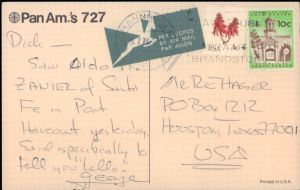 Pan Am's 727
PER LUGPOS
BY AIR MAIL
PAR AVION
10c
Dick —
Saw Aldo
ZANIER of Santo
Fe in Port
Havcourt yesterday.
Said specifically to
tell you "hello."
George
Mr RE Hager
PO Box 1212
Houston, Texas 77001
USA
Printed in U.S.A.